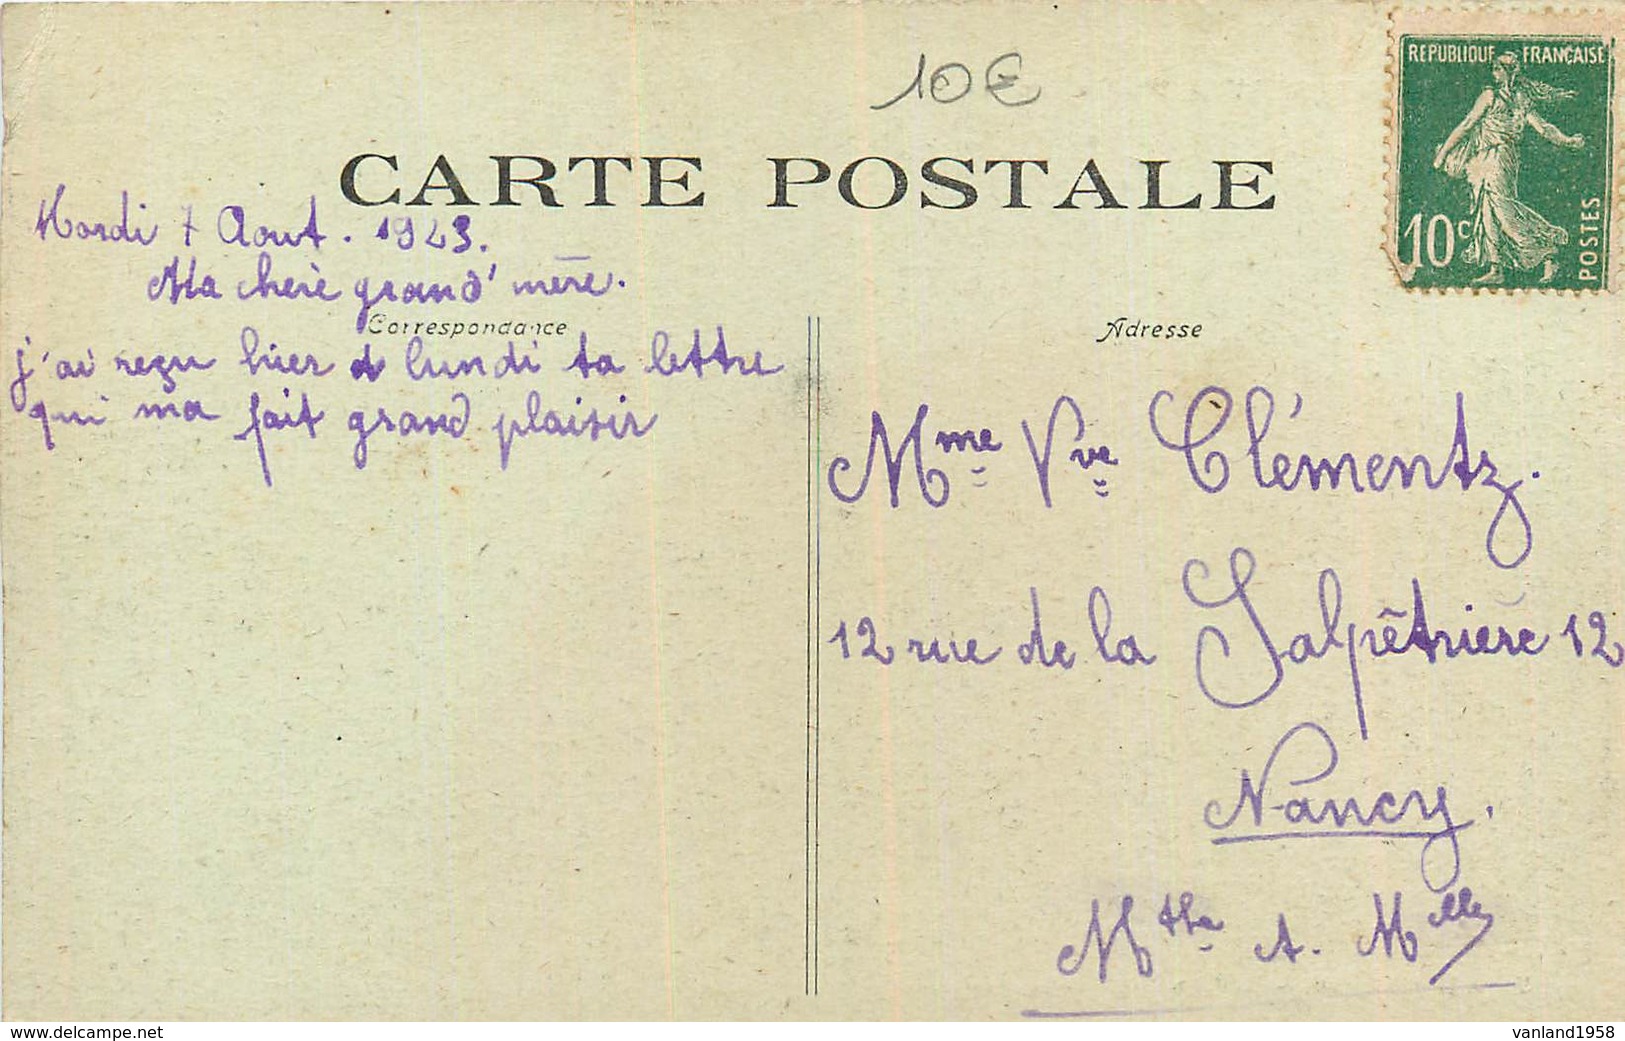 10€
REPUBLIQUE FRANÇAISE
10c
POSTES
CARTE POSTALE
Mardi 7 Aout. 1923.
Ma cherè grand' mère.
Correspondance
j'ai reçu hier lundi ta lettre
qui ma fait grand plaisir
Adresse
Mme Vve Clémentz.
12 rue de la Salpêtrière 12
Nancy.
Mthe A. Mlle
www.delcampe.net
vanland1958